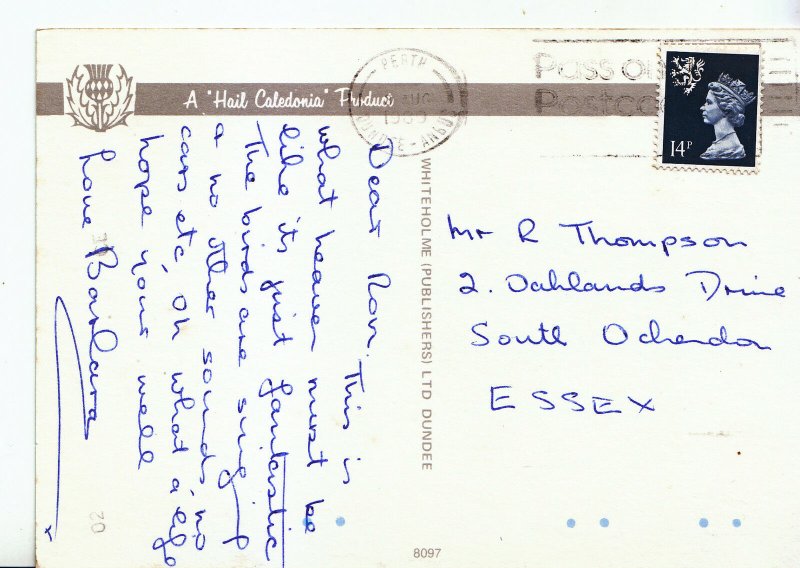 A "Hail Caledonia" Product
Dear Ron. This is
what heaven must be
like its just fantastic
The birds are singing
& no other sounds no
cars etc oh what a life
hope your well
Love Barbara
WHITEHOLME (PUBLISHERS) LTD DUNDEE
PERTH
AUG
1989
DUNDEE - ANGUS
Pass on
Postco
14P
Mr R Thompson
2. Oaklands Drive
South Ockendon
ESSEX
8097
20